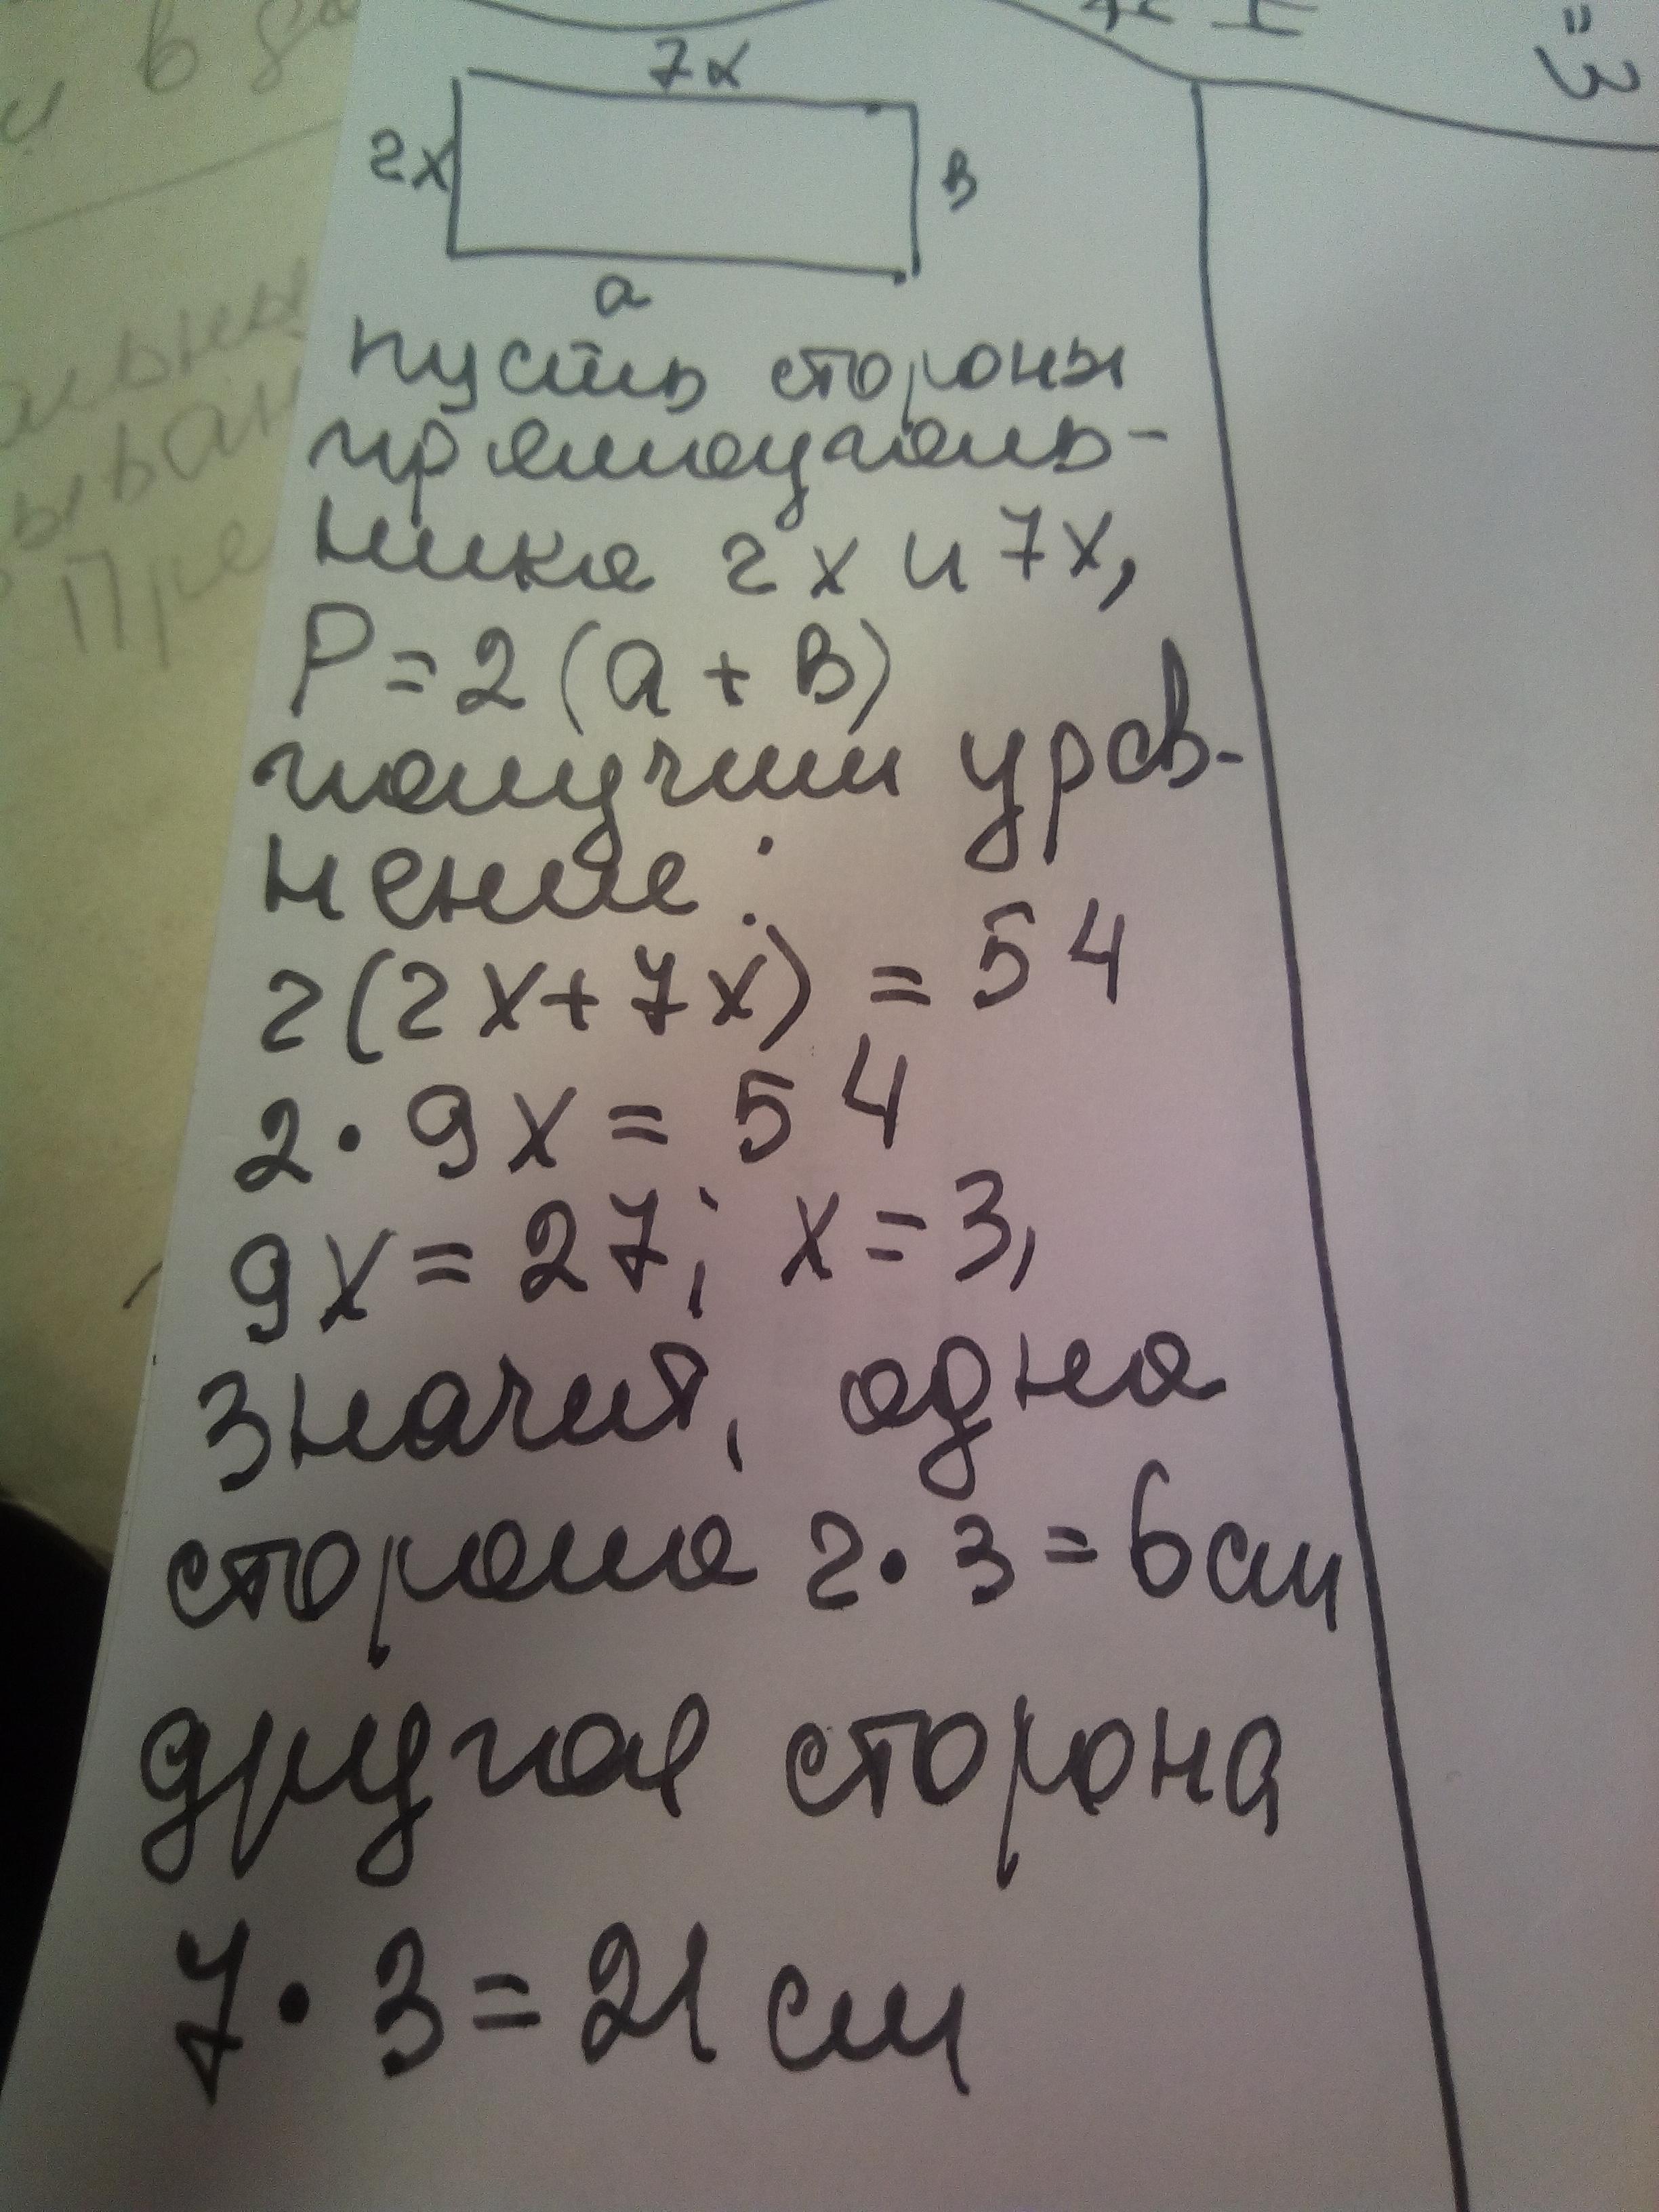 = 3
в
7x
2x
в
а
пусть стороны
прямоуголь-
ника 2x и 7x,
P = 2 (а + в)
получим урав-
нение:
2(2x+7x) = 54
2 · 9x = 54
9x = 27; x = 3,
значит, одна
сторона 2 · 3 = 6 см
другая сторона
7 · 3 = 21 см